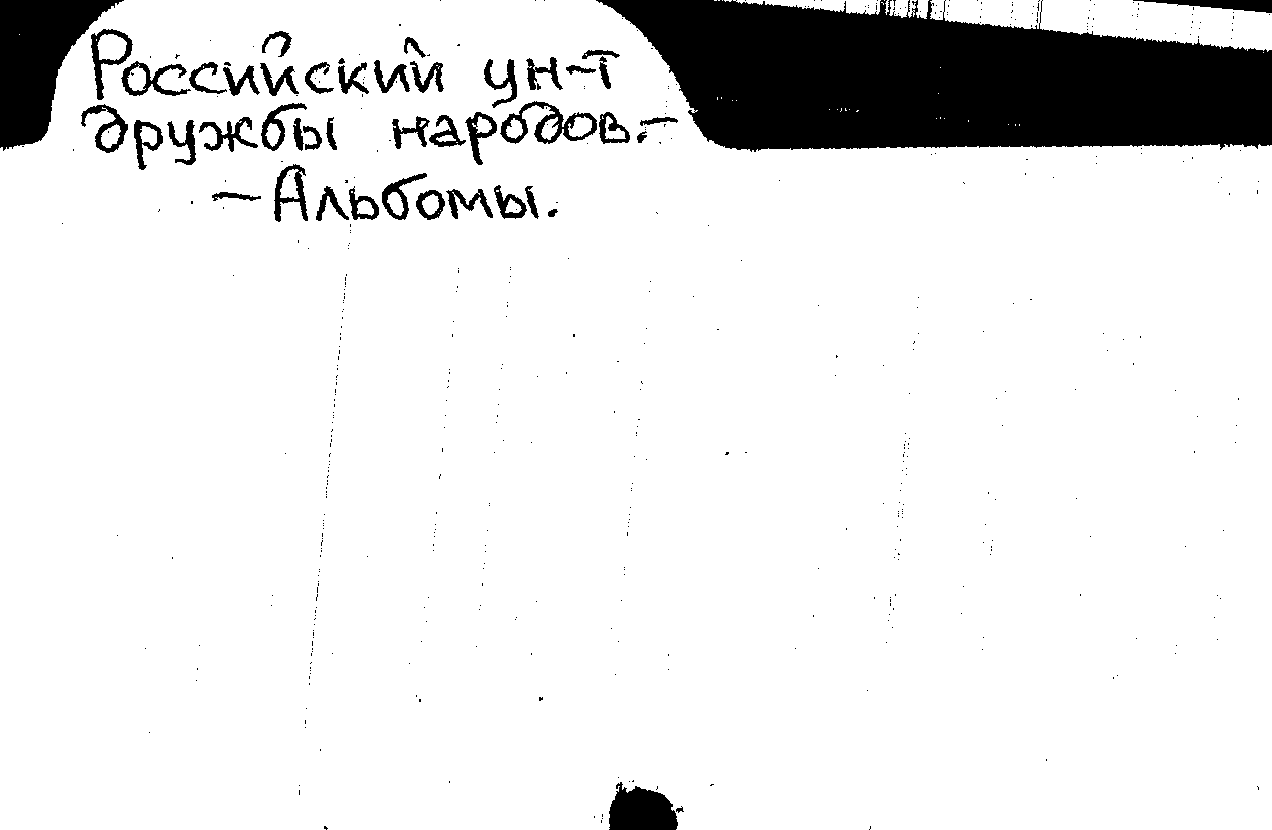 Российский ун-т
дружбы народов.-
-Альбомы.